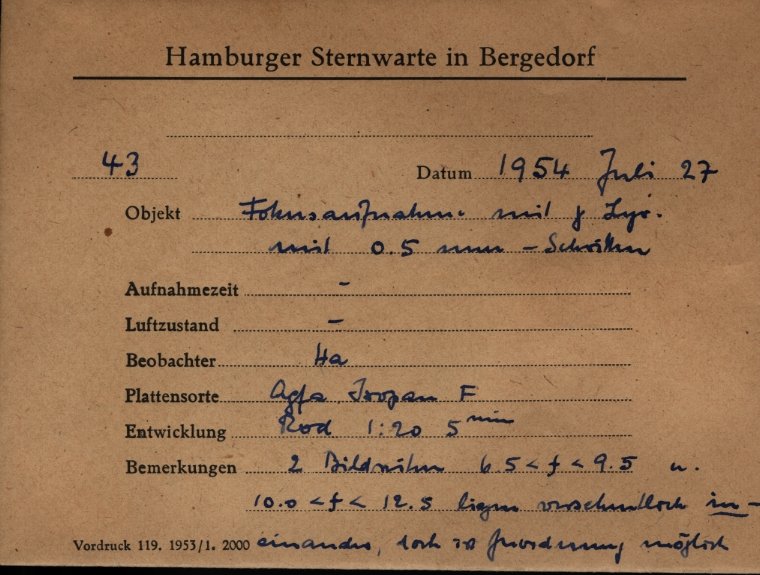 Hamburger Sternwarte in Bergedorf
43 Datum 1954 Juli 27
Objekt Fokusaufnahme mit γ Lyr.
mit 0.5 mm - Schritten
Aufnahmezeit -
Luftzustand -
Beobachter Ha
Plattensorte Agfa Isopan F
Entwicklung Rod 1:20 5 min
Bemerkungen 2 Bildreihen 6.5 < f < 9.5 u.
10.0 < f < 12.5 liegen versehentlich in-
Vordruck 119. 1953/1. 2000 einander, doch ist Zuordnung möglich